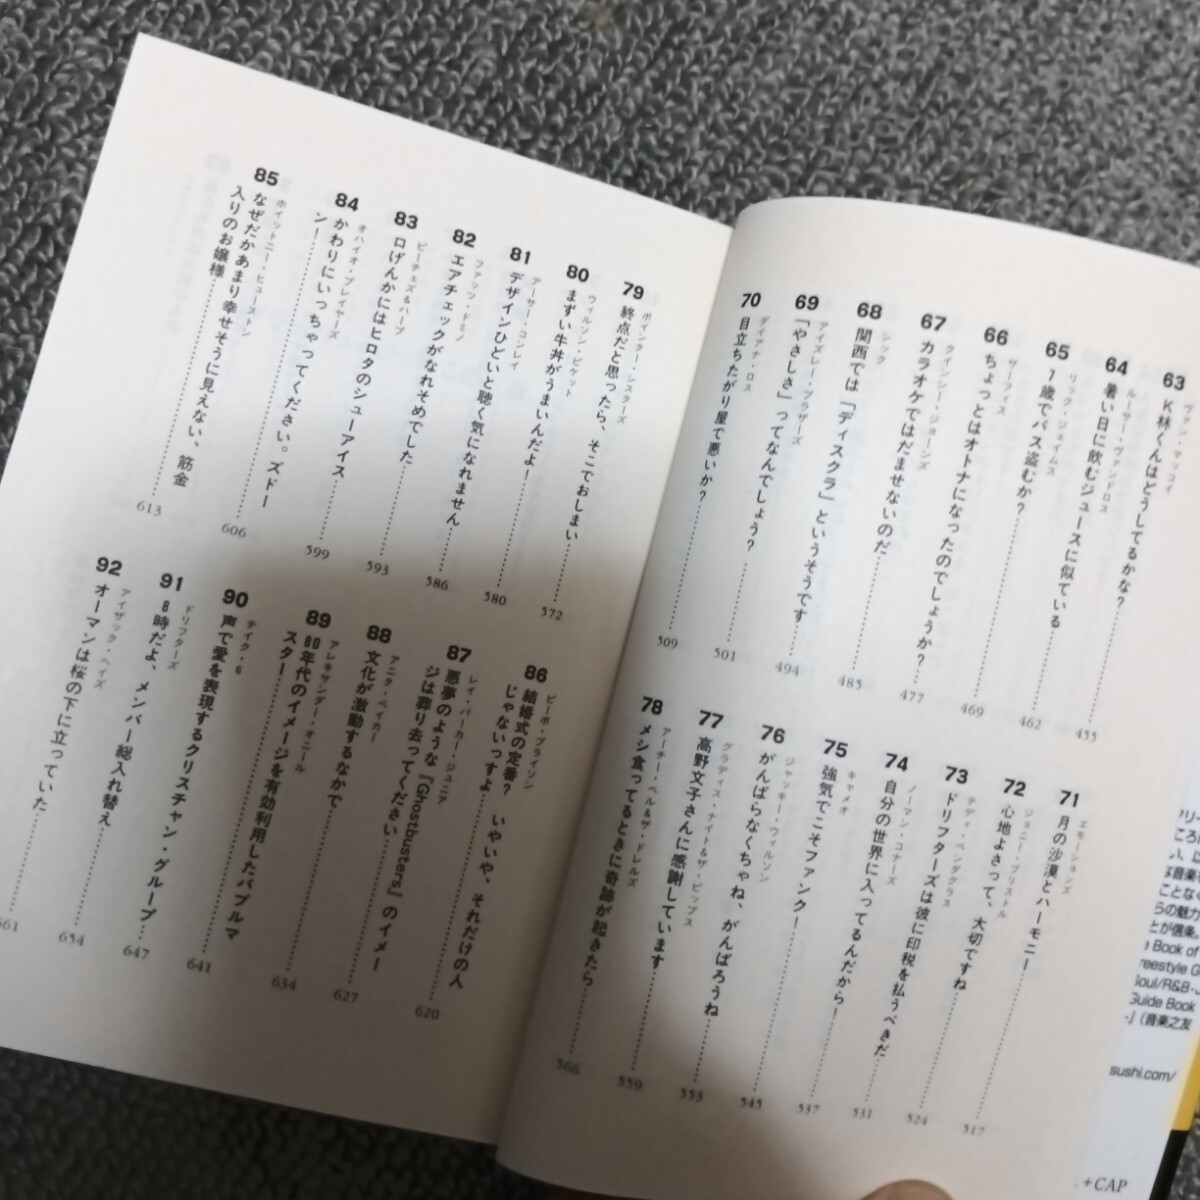 63
ヴァン・マッコイ
K林くんはどうしてるかな?
455
64
ルーサー・ヴァンドロス
暑い日に飲むジュースに似ている
462
65
リック・ジェイムス
7歳でバス盗むか?
469
66
サーフィス
ちょっとはオトナになったのでしょうか?
477
67
クインシー・ジョーンズ
カラオケではだませないのだ
485
68
シック
関西では「ディスクラ」というそうです
494
69
アイズレー・ブラザーズ
「やさしさ」ってなんでしょう?
501
70
ダイアナ・ロス
目立ちたがり屋で悪いか?
509
71
エモーションズ
月の沙漠とハーモニー
517
72
ジョニー・ブリストル
心地よさって、大切ですね
524
73
テディ・ペンダグラス
ドリフターズは彼に印税を払うべきだ
531
74
ノーマン・コナーズ
自分の世界に入ってるんだから!
537
75
キャメオ
強気でこそファンク!
545
76
ジャッキー・ウィルソン
がんばらなくちゃね、がんばろうね
553
77
グラディス・ナイト&ザ・ピップス
高野文子さんに感謝しています
559
78
アーチー・ベル&ザ・ドレルズ
メシ食ってるときに奇跡が起きたら
566
79
ポインター・シスターズ
終点だと思ったら、そこでおしまい
572
80
ウィルソン・ピケット
まずい牛丼がうまいんだよ!
580
81
アーサー・コンレイ
デザインひどいと聴く気になれません
586
82
ファッツ・ドミノ
エアチェックがなれそめでした
593
83
ピーチェズ&ハーブ
口げんかにはヒロタのシューアイス
599
84
オハイオ・プレイヤーズ
かわりにいっちゃってください。ズドー
ン!
606
85
ホイットニー・ヒューストン
なぜだかあまり幸せそうに見えない、筋金
入りのお嬢様
613
86
ピーボ・ブライソン
結婚式の定番? いやいや、それだけの人
じゃないっすよ
620
87
レイ・パーカー・ジュニア
悪夢のような『Ghostbusters』のイメー
ジは葬り去ってください
627
88
アニタ・ベイカー
文化が激動するなかで
634
89
アレキサンダー・オニール
80年代のイメージを有効利用したバブルマ
スター
641
90
テイク・6
声で愛を表現するクリスチャン・グループ
647
91
ドリフターズ
8時だよ、メンバー総入れ替え
654
92
アイザック・ヘイズ
オーマンは桜の下に立っていた
661
な音楽
ことなく
らの魅力
とが信条。
Book of
reestyle G
Soul/R&B-J
Guide Book
』(音楽之友
sushi.com/
+CAP